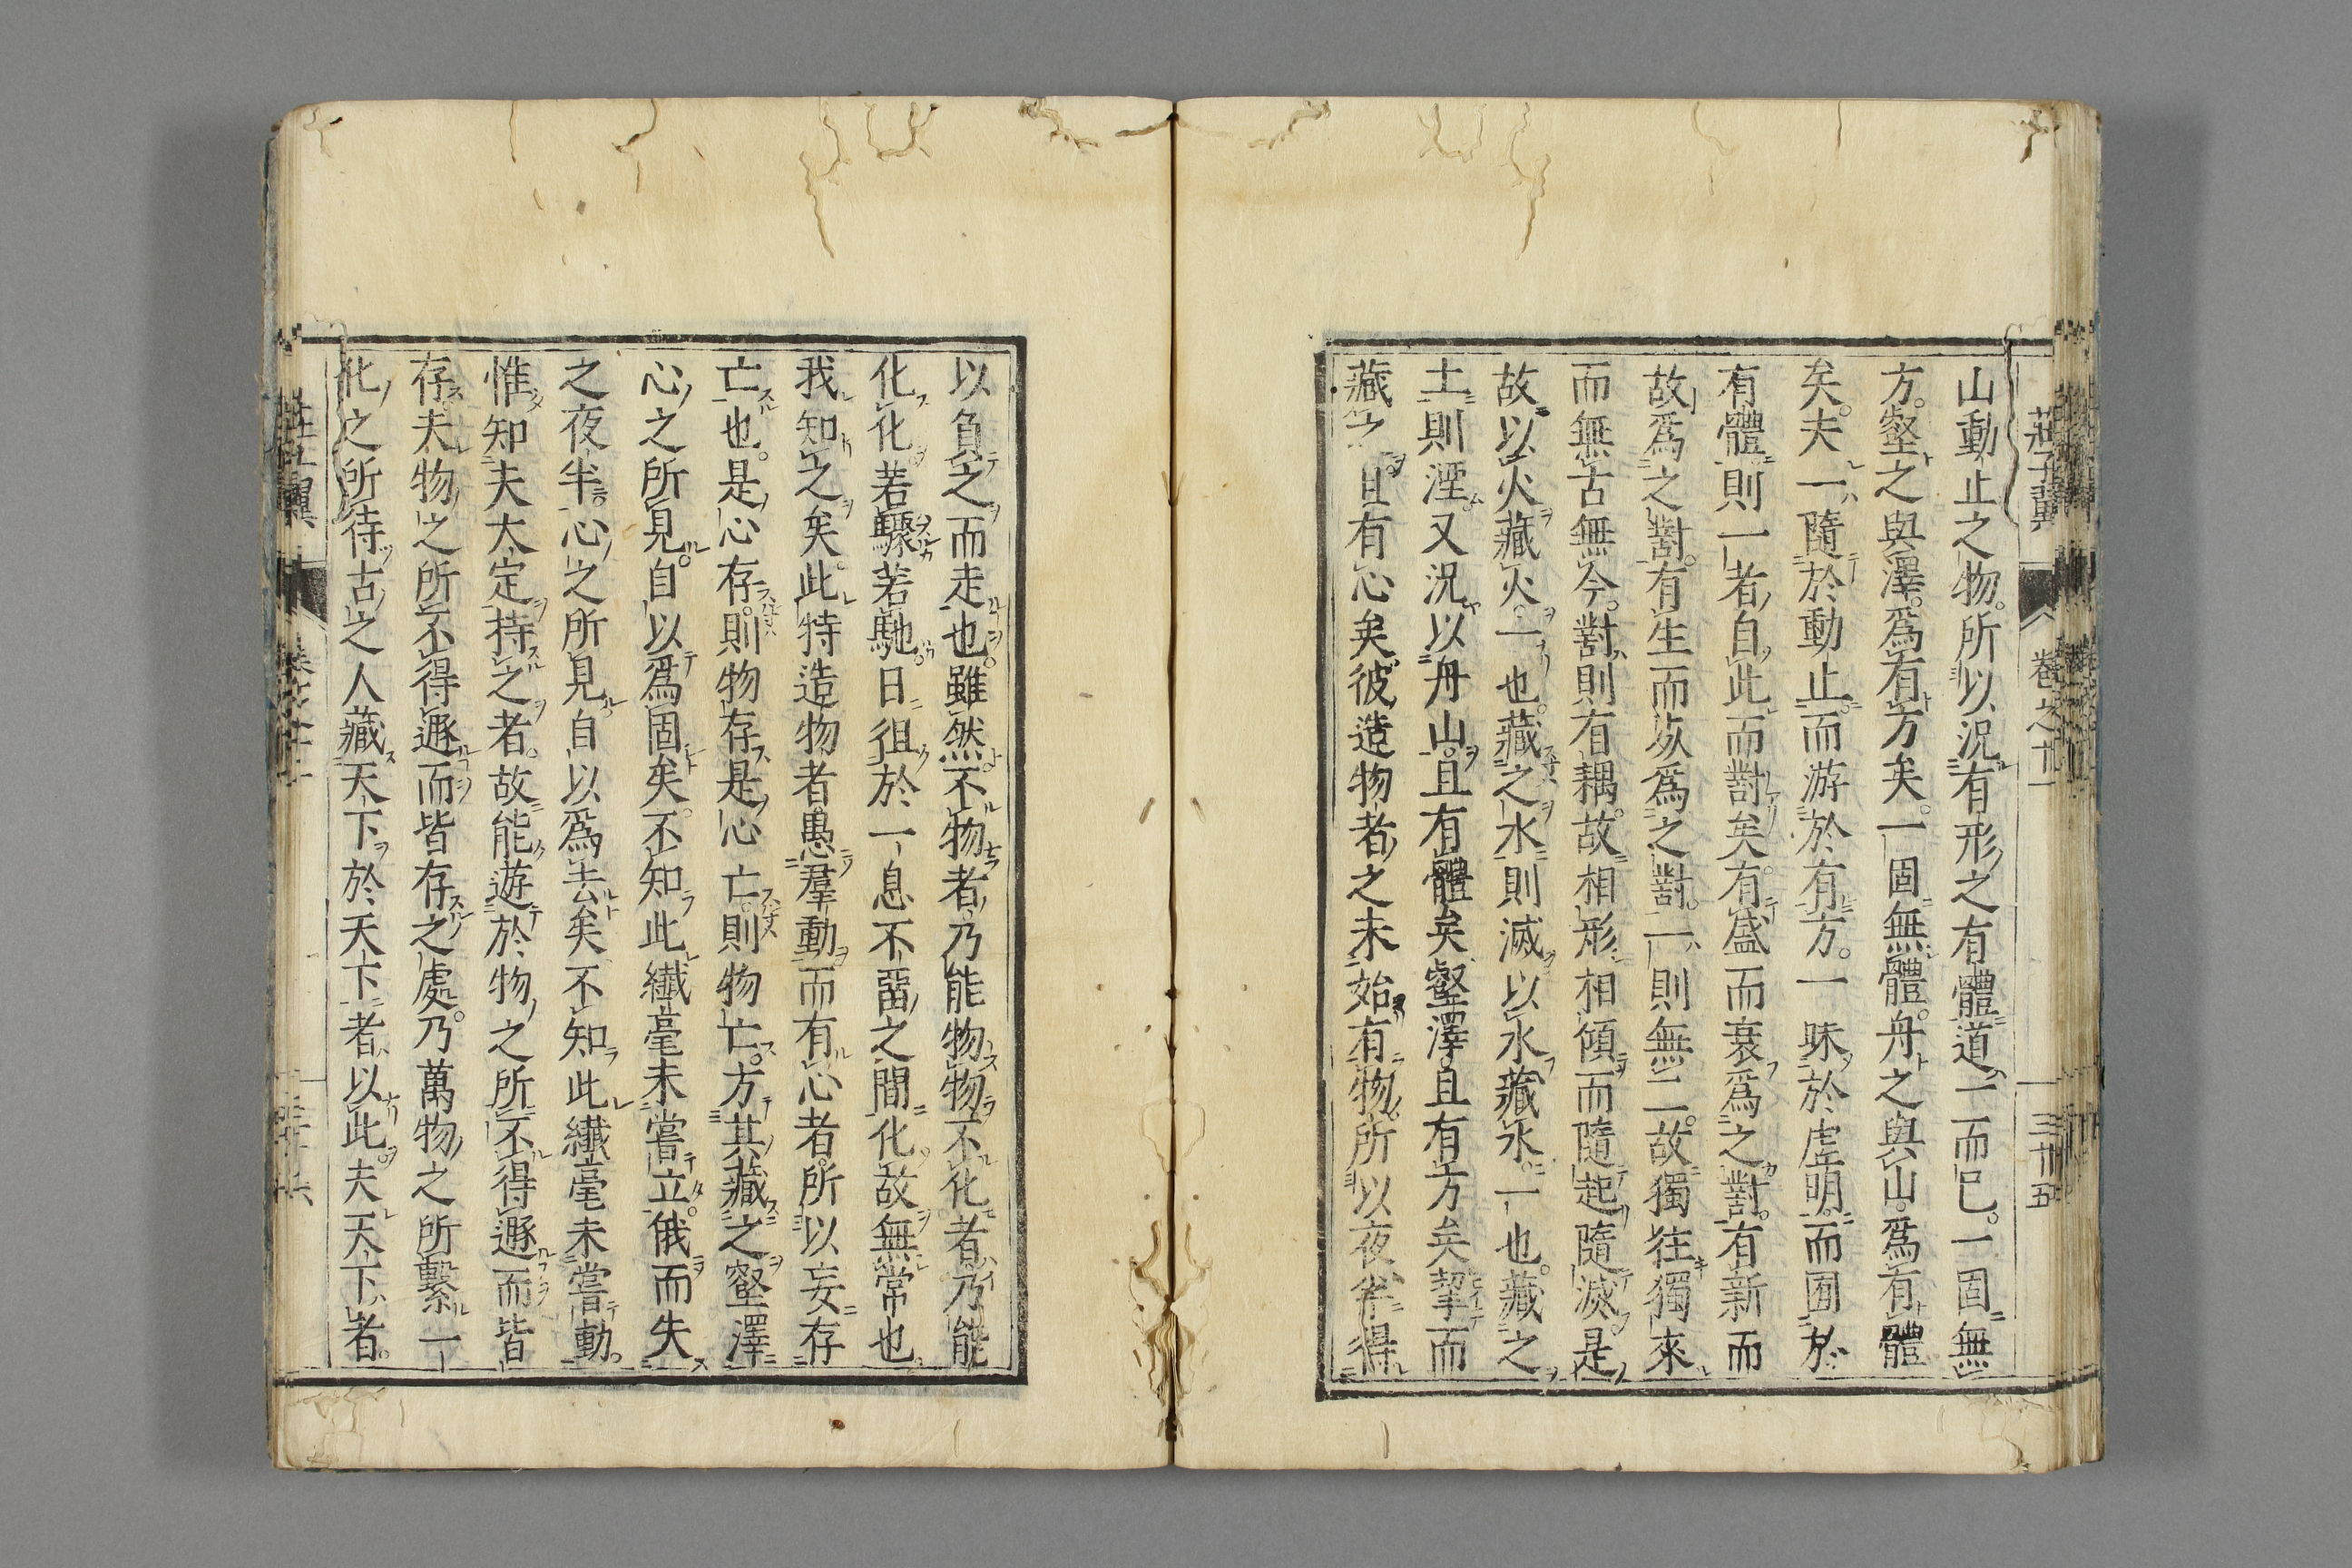 莊子翼 卷之十一 三十五
山動止之物所以況有形之有體道一而已一固無
方壑之與澤爲有方矣一固無體舟之與山爲有體
矣夫一隨於動止而游於有方一昧於虛明而囿於
有體則一者自此而對矣有盛而衰爲之對有新而
故爲之對有生而死爲之對一則無二故獨往獨來
而無古無今對則有耦故相形相傾而隨起隨滅是
故以火藏火一也藏之水則滅以水藏水一也藏之
土則湮又況以舟山且有體矣壑澤且有方矣挈而
藏之且有心矣彼造物者之未始有物所以夜半得
以負之而走也雖然不物者乃能物物不化者乃能
化化若驟若馳日徂於一息不畱之間化故無常也
我知之矣此特造物者愚羣動而有心者所以妄存
亡也是心存則物存是心亡則物亡方其藏之壑澤
心之所見自以爲固矣不知此纖毫未嘗立俄而失
之夜半心之所見自以爲去矣不知此纖毫未嘗動
惟知夫大定持之者故能遊於物之所不得遯而皆
存夫物之所不得遯而皆存之處乃萬物之所繫一
化之所待古之人藏天下於天下者以此夫天下者